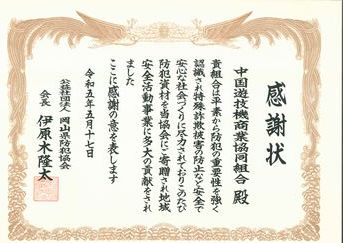 感謝状
中国遊技機商業協同組合 殿
貴組合は平素から防犯の重要性を強く
認識され特殊詐欺被害の防止など安全で
安心な社会づくりに尽力されておりこのたび
防犯資材を当協会にご寄贈され地域
安全活動事業に多大の貢献をされ
ました
ここに感謝の意を表します
令和五年五月十七日
公益社団法人 岡山県防犯協会
会長 伊原木隆太